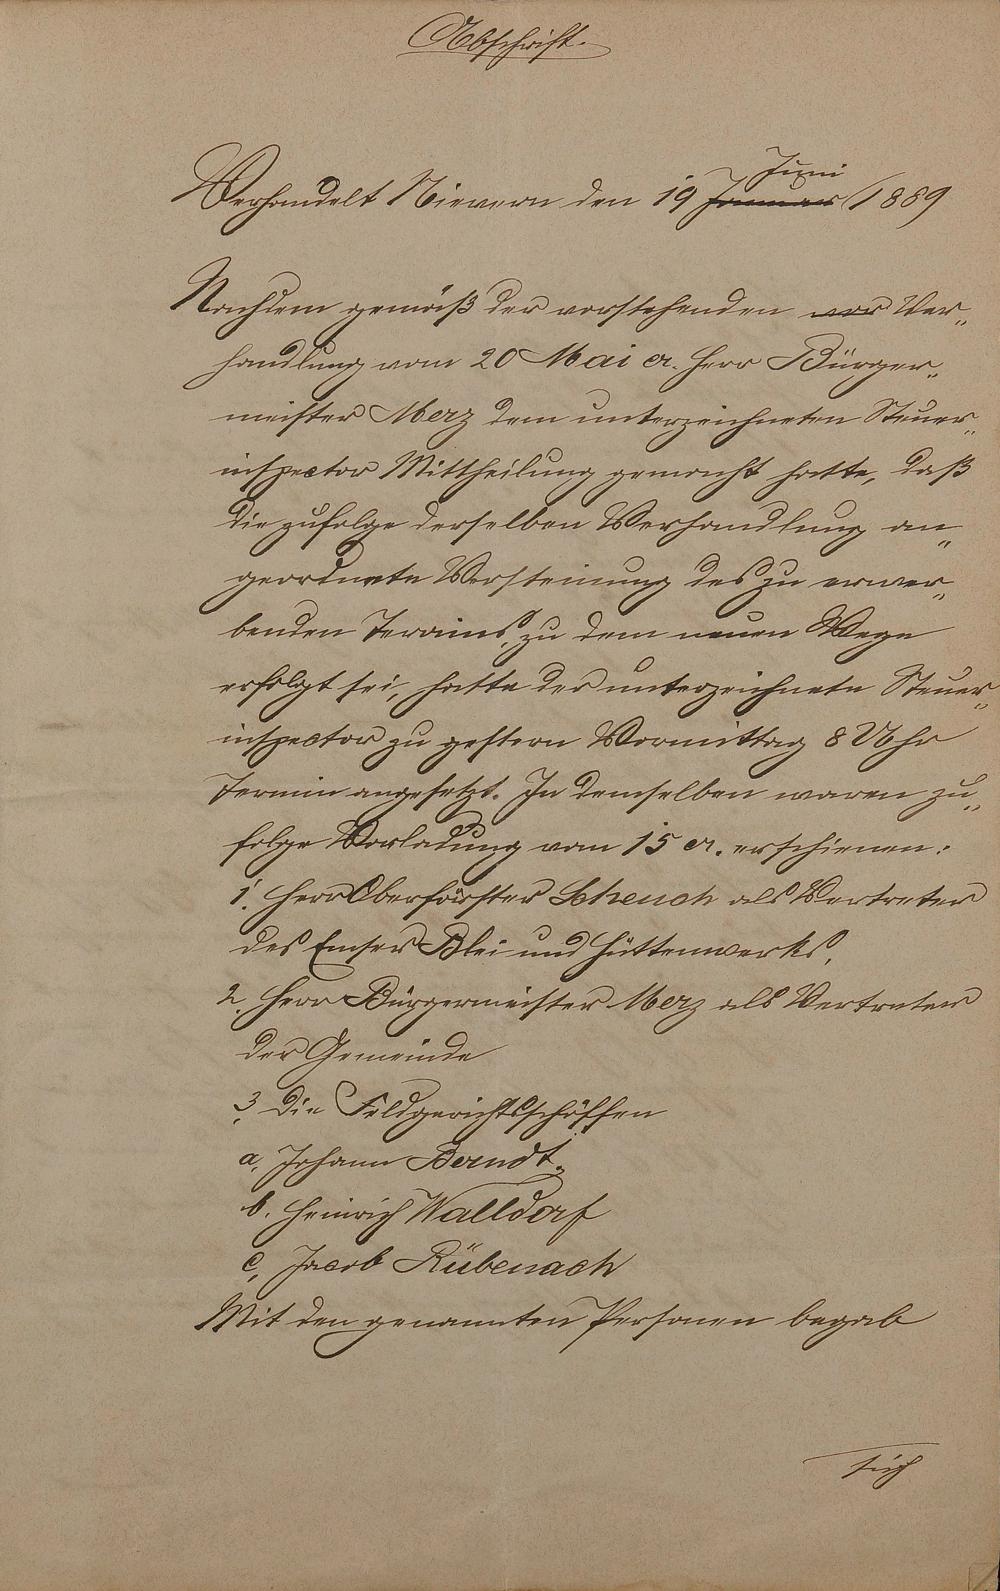 Abschrift.
Juni
Verhandelt Nievern den 19 Januar 1889
Nachdem gemäß der vorstehenden vor Ver„
handlung vom 20 Mai cr. Herr Bürger„
meister Merz dem unterzeichneten Steuer„
inspector Mittheilung gemacht hatte, daß
die zufolge derselben Verhandlung an„
geordnete Versteinung des zu erwer„
benden Terrains, zu dem neuen Wege
erfolgt sei, hatte der unterzeichnete Steuer„
inspector zu gestern Vormittag 8 Uhr
Termin angesetzt. In demselben waren zu„
folge Vorladung vom 15 cr. erschienen:
1. Herr Oberförster Scheuch als Vertreter
des Emser Blei und Hüttenwerks,
2. Herr Bürgermeister Merz als Vertreter
der Gemeinde
3. Die Feldgerichtsschöffen
a, Johann Berndt,
b. Heinrich Walldorf
c, Jacob Rübenach
Mit den genannten Personen begab
sich